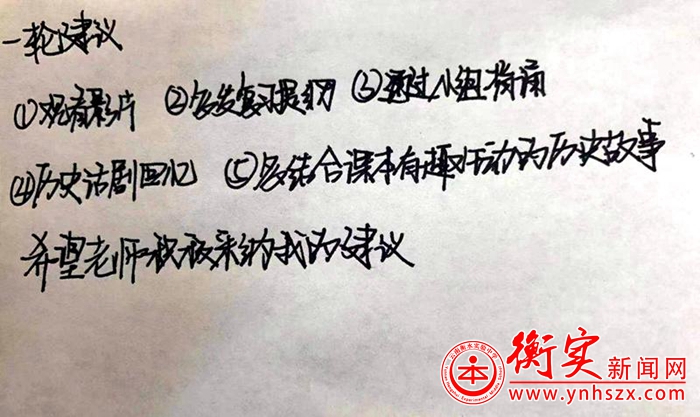 一轮建议
①观看影片 ②多发复习提纲 ③通过小组背诵
④历史话剧回忆 ⑤多结合课本有趣生动的历史故事
希望老师积极采纳我的建议
云南衡水实验中学
衡实新闻网
www.ynhszx.com